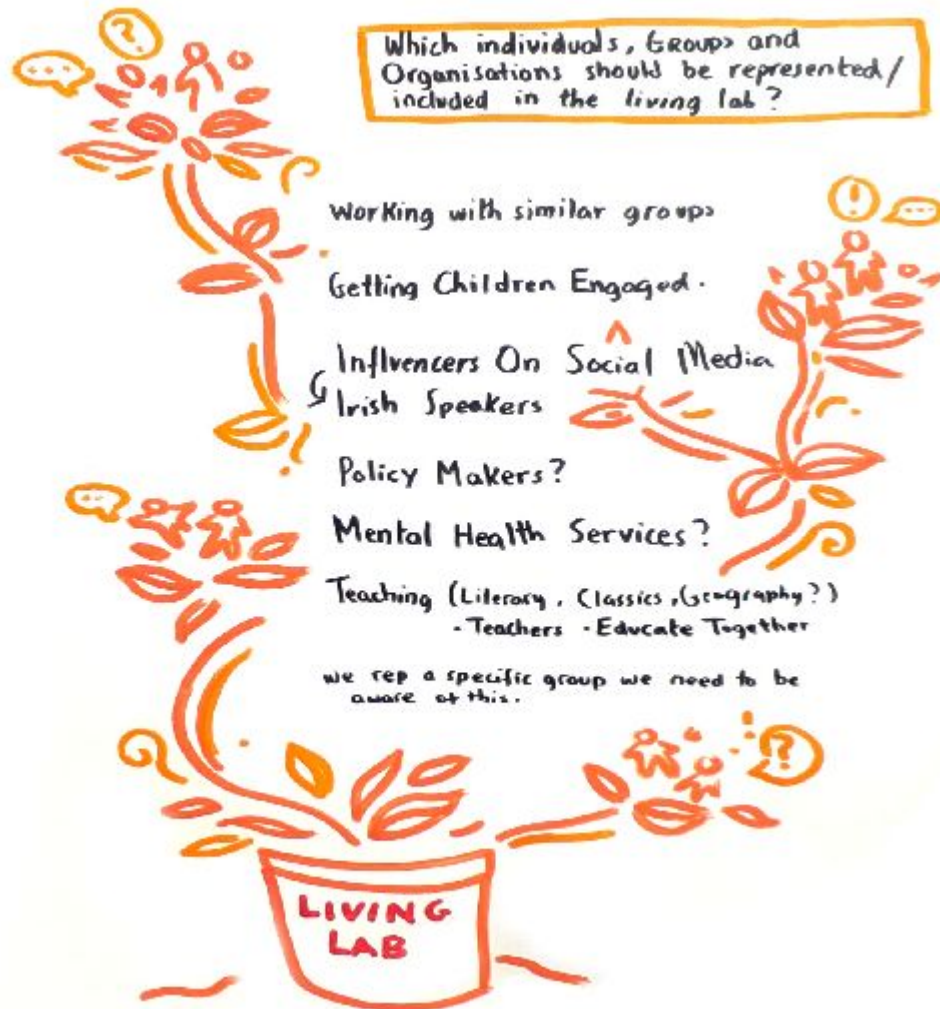 Which individuals, Groups and
Organisations should be represented/
included in the living lab?
Working with similar groups
Getting Children Engaged.
Influencers On Social Media
Irish Speakers
Policy Makers?
Mental Health Services?
Teaching (Literacy, Classics, Geography?)
· Teachers · Educate Together
we rep a specific group we need to be
aware of this.
LIVING
LAB